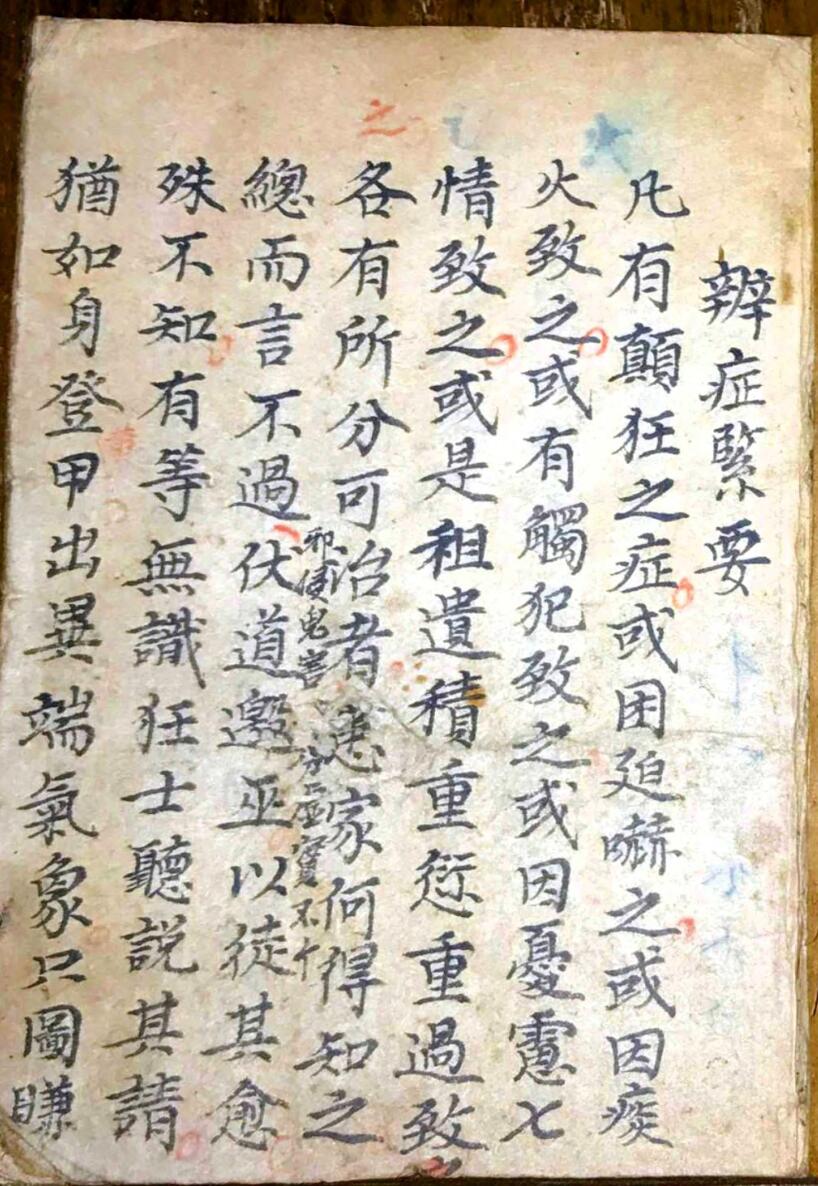 辨症緊要
凡有顛狂之症或困迫嚇之或因痰
火致之或有觸犯致之或因憂慮七
情致之或是祖遺積重愆重過致之
各有所分可治者患家何得知之
邪使鬼害 分虛實不个
總而言不過伏道邀巫以徒其愈
殊不知有等無識狂士聽説其請
猶如身登甲出異端氣象只圖賺